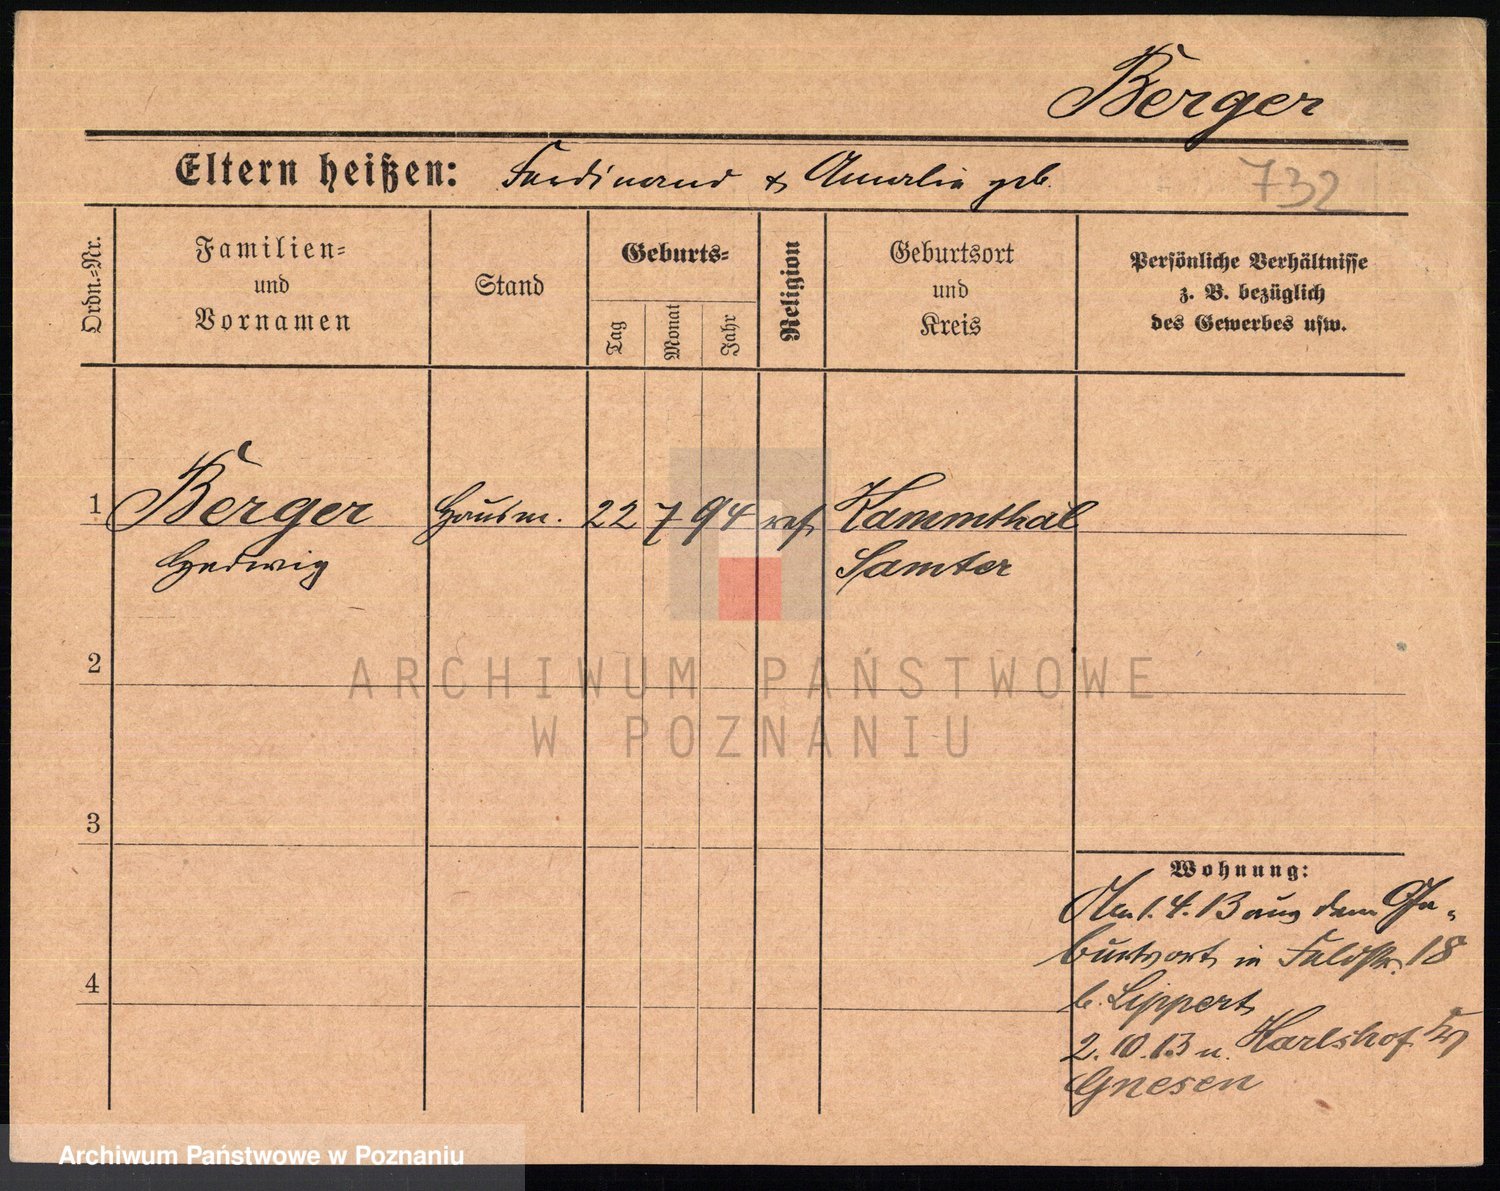 Berger
Eltern heißen: Ferdinand & Amalie geb.
732
Ordn.=Nr.
Familien=
und
Vornamen
Stand
Geburts=
Tag
Monat
Jahr
Religion
Geburtsort
und
Kreis
Persönliche Verhältnisse
z. B. bezüglich
des Gewerbes usw.
1 Berger Hausm. 22 7 94 ref. Kammthal
Hedwig Samter
2
ARCHIWUM PAŃSTWOWE
W POZNANIU
3
4
Wohnung:
Am 1.4.13 aus dem Ge-
burtsort in Feldstr. 18
b. Lippert
2.10.13 n. Karlshof Kr
Gnesen
Archiwum Państwowe w Poznaniu